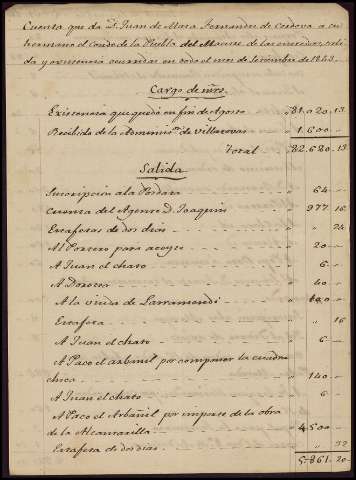 Cuenta que da D. Juan de Mata Fernandez de Cordova a su
hermano el Conde de la Puebla del Maestre de las entradas, sali
da y existencia ocurridas en todo el mes de Setiembre de 1843.
Cargo de
Existencia que quedó en fin de Agosto 81.020.13
Recibido de la Administ.on de Villacovas 1.600
Total 82.620.13
Salida
Suscripcion a la Postata 64
Cuenta del Agente D. Joaquin 977 16
Estafetas de dos dias 24
Al Portero para aceyte 20
A Juan el chato 6
A Dorotea 40
A la viuda de Larramendi
Estafeta 16
A Juan el chato 6
A Paco el albanil por componer la cuadra
chica 140
A Juan el chato 6
A Paco el Albañil por importe de la obra
de la Alcantarilla 4500
Estafeta de dos dias 32
5.861.20